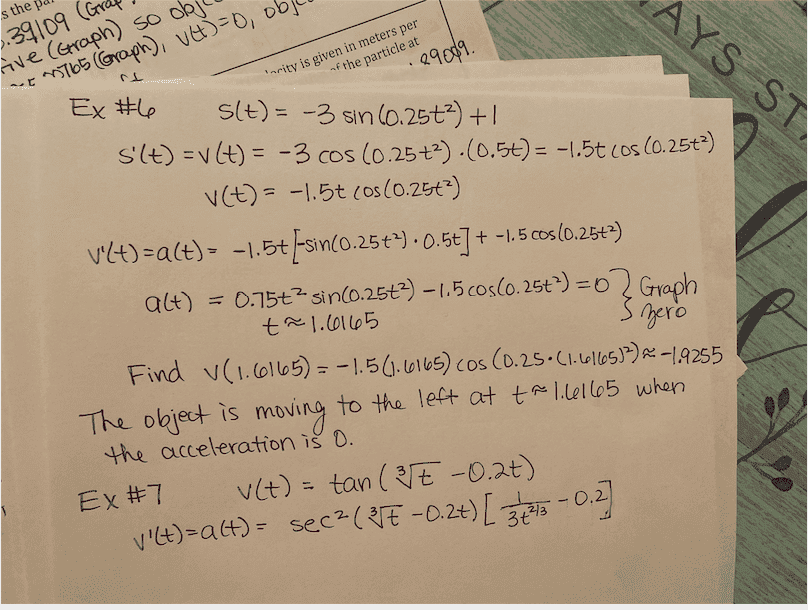 s the pa
.39109 (Grap
ive (Graph) so obj
(Graph), v(t)=0, obj
locity is given in meters per
of the particle at
.89099.
AYS ST
Ex #6 s(t) = -3 sin(0.25t²)+1
s'(t) = v(t) = -3 cos(0.25t²)·(0.5t) = -1.5t cos(0.25t²)
v(t) = -1.5t cos(0.25t²)
v'(t)=a(t)= -1.5t[-sin(0.25t²)·0.5t] + -1.5cos(0.25t²)
a(t) = 0.75t² sin(0.25t²) -1.5cos(0.25t²) = 0 } Graph
t≈1.6165 zero
Find v(1.6165) = -1.5(1.6165) cos(0.25·(1.6165)²)≈-1.9255
The object is moving to the left at t≈1.6165 when
the acceleration is 0.
Ex #7 v(t) = tan(∛t -0.2t)
v'(t)=a(t)= sec²(∛t -0.2t)[1/(3t^(2/3)) -0.2]